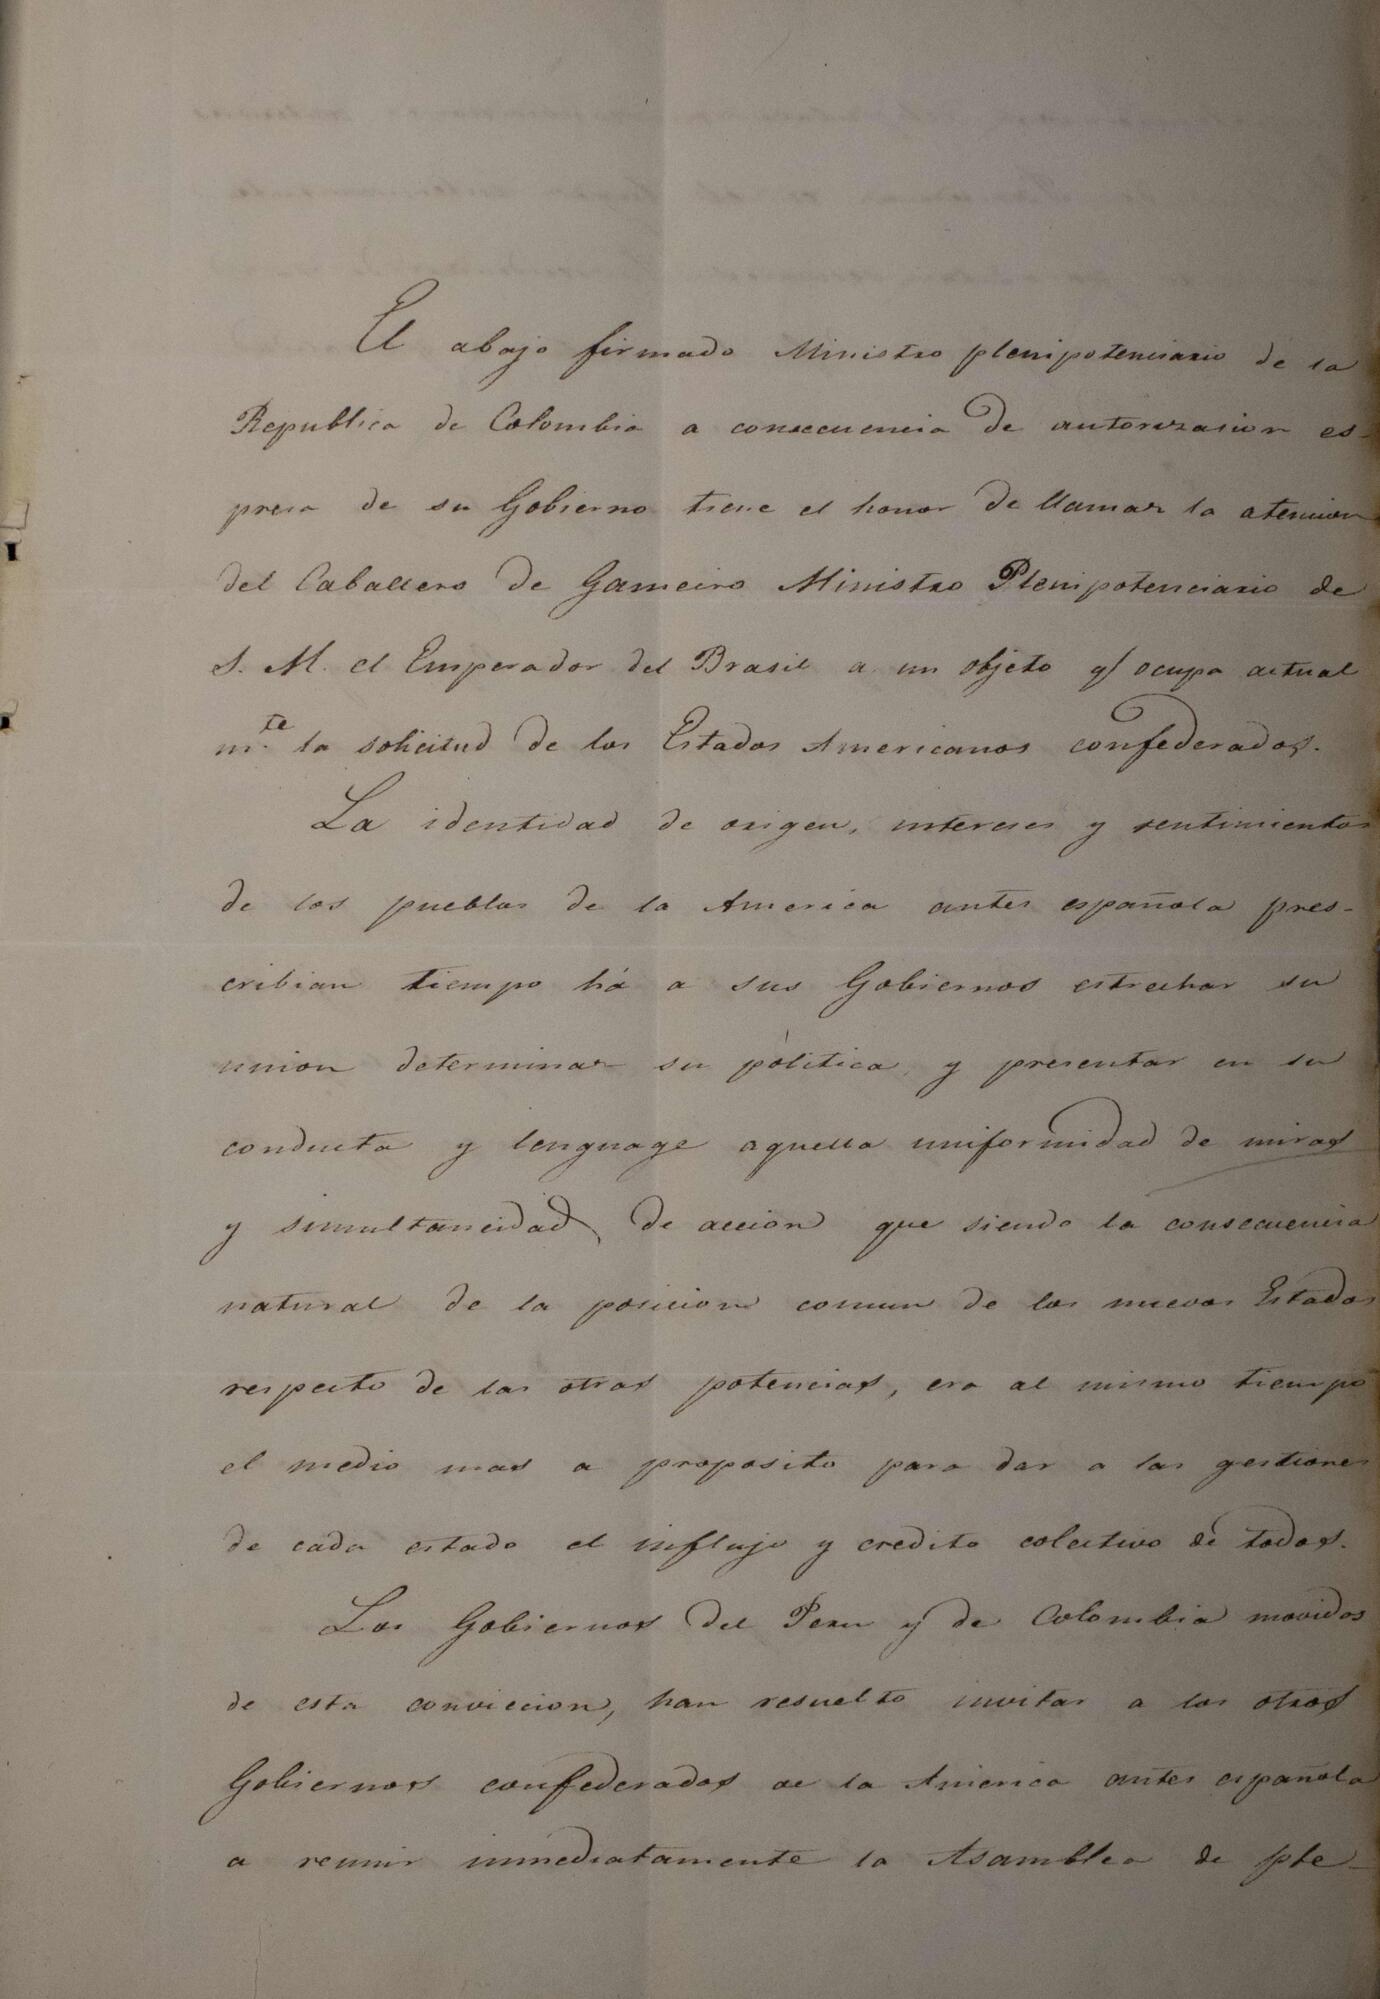 El abajo firmado Ministro plenipotenciario de la
Republica de Colombia a consecuencia de autorizasion es-
presa de su Gobierno tiene el honor de llamar la atencion
del Caballero de Gameiro Ministro Plenipotenciario de
S. M. el Emperador del Brasil a un objeto q/ ocupa actual
m.te la solicitud de los Estados Americanos confederados.
La identidad de origen, intereses y sentimientos
de los pueblos de la America antes española pres-
cribian tiempo há a sus Gobiernos estrechar su
union determinar su politica, y presentar en su
conducta y lenguage aquella uniformidad de miras
y simultaneidad de accion que siendo la consecuencia
natural de la posicion comun de los nuevos Estados
respecto de las otras potencias, era al mismo tiempo
el medio mas a proposito para dar a las gestiones
de cada estado el influjo y credito colectivo de todos.
Los Gobiernos del Peru y de Colombia movidos
de esta conviccion, han resuelto invitar a los otros
Gobiernos confederados de la America antes española
a reunir inmediatamente la Asamblea de ple-